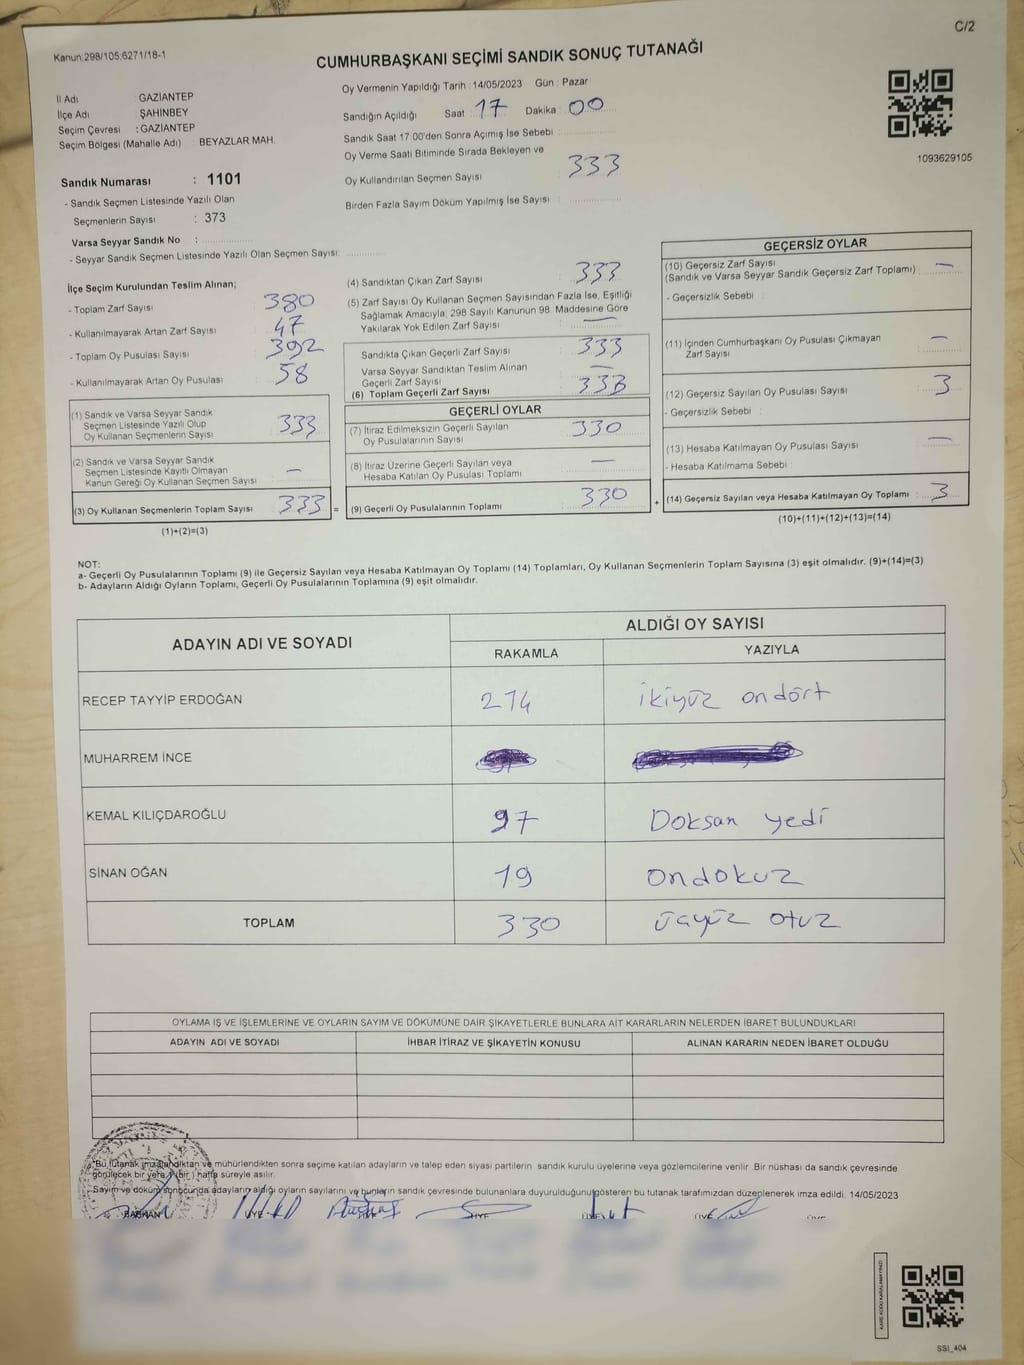 C/2
Kanun:298/105:6271/18-1
CUMHURBAŞKANI SEÇİMİ SANDIK SONUÇ TUTANAĞI
Oy Vermenin Yapıldığı Tarih : 14/05/2023 Gün : Pazar
İl Adı : GAZİANTEP
İlçe Adı : ŞAHİNBEY
Seçim Çevresi : GAZİANTEP
Seçim Bölgesi (Mahalle Adı) BEYAZLAR MAH.
Sandığın Açıldığı Saat 17 Dakika 00
Sandık Saat 17:00'den Sonra Açımış İse Sebebi
Oy Verme Saati Bitiminde Sırada Bekleyen ve
Oy Kullandırılan Seçmen Sayısı 333
Birden Fazla Sayım Döküm Yapılmış İse Sayısı
1093629105
Sandık Numarası : 1101
- Sandık Seçmen Listesinde Yazılı Olan
Seçmenlerin Sayısı : 373
Varsa Seyyar Sandık No :
- Seyyar Sandık Seçmen Listesinde Yazılı Olan Seçmen Sayısı:
İlçe Seçim Kurulundan Teslim Alınan;
- Toplam Zarf Sayısı 380
- Kullanılmayarak Artan Zarf Sayısı 47
- Toplam Oy Pusulası Sayısı 392
- Kullanılmayarak Artan Oy Pusulası 58
(1) Sandık ve Varsa Seyyar Sandık
Seçmen Listesinde Yazılı Olup
Oy Kullanan Seçmenlerin Sayısı 333
(2) Sandık ve Varsa Seyyar Sandık
Seçmen Listesinde Kayıtlı Olmayan
Kanun Gereği Oy Kullanan Seçmen Sayısı —
(3) Oy Kullanan Seçmenlerin Toplam Sayısı 333 =
(1)+(2)=(3)
(4) Sandıktan Çıkan Zarf Sayısı 333
(5) Zarf Sayısı Oy Kullanan Seçmen Sayısından Fazla İse, Eşitliği
Sağlamak Amacıyla, 298 Sayılı Kanunun 98. Maddesine Göre
Yakılarak Yok Edilen Zarf Sayısı —
Sandıkta Çıkan Geçerli Zarf Sayısı 333
Varsa Seyyar Sandıktan Teslim Alınan
Geçerli Zarf Sayısı —
(6) Toplam Geçerli Zarf Sayısı 333
GEÇERLİ OYLAR
(7) İtiraz Edilmeksizin Geçerli Sayılan
Oy Pusulalarının Sayısı 330
(8) İtiraz Üzerine Geçerli Sayılan veya
Hesaba Katılan Oy Pusulası Toplamı —
(9) Geçerli Oy Pusulalarının Toplamı 330 +
GEÇERSİZ OYLAR
(10) Geçersiz Zarf Sayısı —
(Sandık ve Varsa Seyyar Sandık Geçersiz Zarf Toplamı)
- Geçersizlik Sebebi :
(11) İçinden Cumhurbaşkanı Oy Pusulası Çıkmayan
Zarf Sayısı —
(12) Geçersiz Sayılan Oy Pusulası Sayısı 3
- Geçersizlik Sebebi :
(13) Hesaba Katılmayan Oy Pusulası Sayısı —
- Hesaba Katılmama Sebebi :
(14) Geçersiz Sayılan veya Hesaba Katılmayan Oy Toplamı 3
(10)+(11)+(12)+(13)=(14)
NOT:
a- Geçerli Oy Pusulalarının Toplamı (9) ile Geçersiz Sayılan veya Hesaba Katılmayan Oy Toplamı (14) Toplamları, Oy Kullanan Seçmenlerin Toplam Sayısına (3) eşit olmalıdır. (9)+(14)=(3)
b- Adayların Aldığı Oyların Toplamı, Geçerli Oy Pusulalarının Toplamına (9) eşit olmalıdır.
ADAYIN ADI VE SOYADI ALDIĞI OY SAYISI
RAKAMLA YAZIYLA
RECEP TAYYİP ERDOĞAN 214 ikiyüz ondört
MUHARREM İNCE
KEMAL KILIÇDAROĞLU 97 Doksan yedi
SİNAN OĞAN 19 ondokuz
TOPLAM 330 üçyüz otuz
OYLAMA İŞ VE İŞLEMLERİNE VE OYLARIN SAYIM VE DÖKÜMÜNE DAİR ŞİKAYETLERLE BUNLARA AİT KARARLARIN NELERDEN İBARET BULUNDUKLARI
ADAYIN ADI VE SOYADI İHBAR İTİRAZ VE ŞİKAYETİN KONUSU ALINAN KARARIN NEDEN İBARET OLDUĞU
"Bu tutanak imzalandıktan ve mühürlendikten sonra seçime katılan adayların ve talep eden siyasi partilerin sandık kurulu üyelerine veya gözlemcilerine verilir. Bir nüshası da sandık çevresinde
görülecek bir yere 1 (bir) hafta süreyle asılır.
Sayım ve döküm sonucunda adayların aldığı oyların sayılarını ve bunların sandık çevresinde bulunanlara duyurulduğunu gösteren bu tutanak tarafımızdan düzenlenerek imza edildi. 14/05/2023
BAŞKAN ÜYE ÜYE ÜYE ÜYE ÜYE
SSI_404